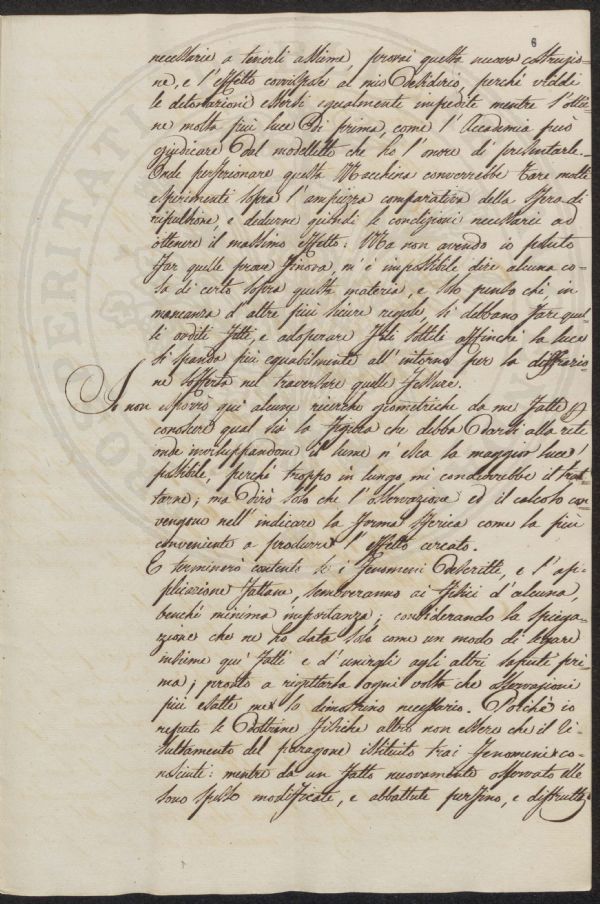 6
necessarie a tenerli assieme, provai questa nuova costruzio=
ne, e l'effetto corrispose al mio desiderio, perchè viddi
le detonazioni essersi egualmente impedite mentre l'otti=
ne molta più luce di prima, come l'Accademia può
giudicare dal modelletto che ho l'onore di presentarle.
Onde perfezionare questa Macchina converrebbe fare molte
esperimenti sopra l'ampiezza comparativa della sfera di
ripulsione, e dedurne quindi le condizioni necessarie ad
ottenere il massimo effetto: Ma non avendo io potuto
far quelle prove finora, m'è impossibile dire alcuna co=
sa di certo sopra questa materia, e solo penso che in
mancanza d'altre più sicure regole, si debbano fare que'
li orditi fitti, e adoperare fili sottili affinchè la luce
si spanda più equabilmente all'intorno per la diffrazio=
ne sofferta nel traversare quelle fessure.
Io non esporrò quì alcune ricerche geometriche da me fatte p
conoscere qual sia la figura che debba darsi alla rete
onde inviluppandone il lume n'esca la maggior luce
possibile, perchè troppo in lungo mi condurrebbe il trat=
tarne; ma dirò solo che l'osservazione ed il calcolo con=
vengono nell'indicare la forma sferica come la più
conveniente a produrre l'effetto cercato.
E terminerò contento se i fenomeni descritti, e l'ap=
plicazione fattane, sembreranno ai fisici d'alcuna,
benchè minima importanza; considerando la spiega=
zione che ne ho data solo come un modo di legare
insieme que' fatti e d'unirgli agli altri saputi pri=
ma; pronto a rigettarla ogni volta che osservazioni
più esatte me lo dimostrino necessario. Poichè io
reputo le dottrine fisiche altro non essere che il ri=
sultamento del paragone istituito trai fenomeni co=
nosciuti: mentre da un fatto nuovamente osservato elle
sono spesso modificate, e abbattute perfino, e distrutte